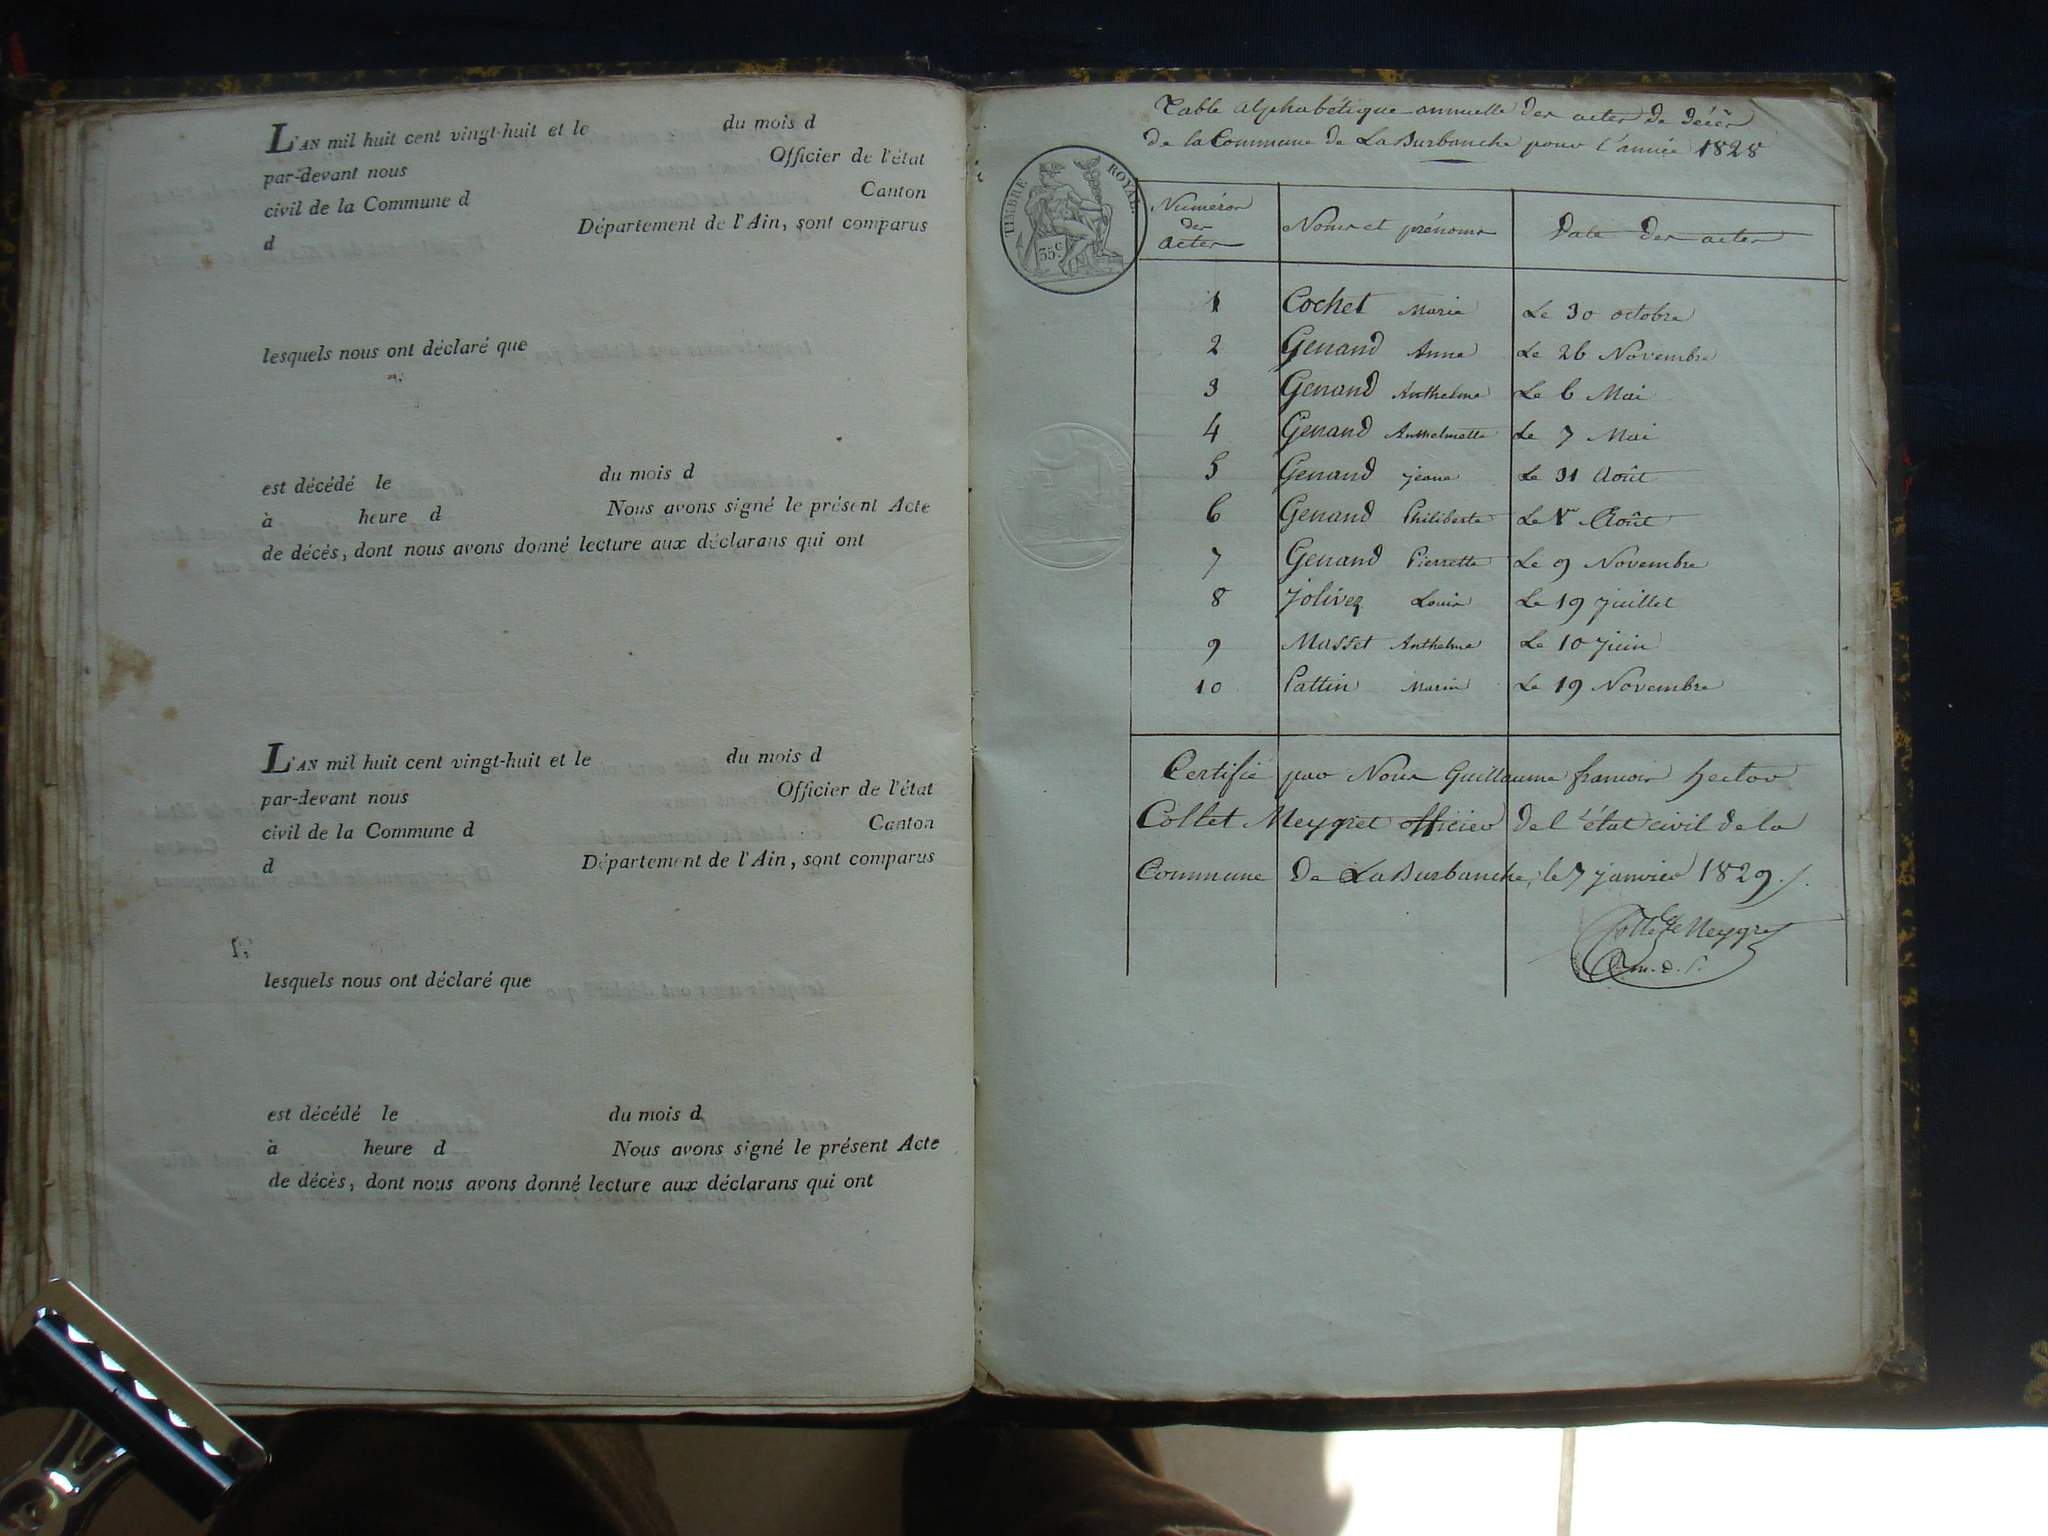 L'AN mil huit cent vingt-huit et le du mois d
par-devant nous Officier de l'état
civil de la Commune d Canton
d Département de l'Ain, sont comparus
lesquels nous ont déclaré que
est décédé le du mois d
à heure d Nous avons signé le présent Acte
de décès, dont nous avons donné lecture aux déclarans qui ont
L'AN mil huit cent vingt-huit et le du mois d
par-devant nous Officier de l'état
civil de la Commune d Canton
d Département de l'Ain, sont comparus
lesquels nous ont déclaré que
est décédé le du mois d
à heure d Nous avons signé le présent Acte
de décès, dont nous avons donné lecture aux déclarans qui ont
Table alphabétique annuelle des actes de décès
de la Commune de La Burbanche pour l'année 1828
TIMBRE ROYAL
35 c.
Numéros des actes Noms et prénoms Date des actes
1 Cochet Marie Le 30 octobre
2 Genand Anne Le 26 Novembre
3 Genand Anthelme Le 6 Mai
4 Genand Anthelmette Le 7 Mai
5 Genand jeane Le 31 Août
6 Genand Philiberte Le 1er Août
7 Genand Pierrette Le 9 Novembre
8 Jolivez Louis Le 19 juillet
9 Masset Anthelme Le 10 juin
10 Pattin Marin Le 19 Novembre
Certifié par Nous Guillaume francois hector
Collet Meygret officier de l'état civil de la
Commune de La Burbanche, le 7 janvier 1829.
Collet Meygret